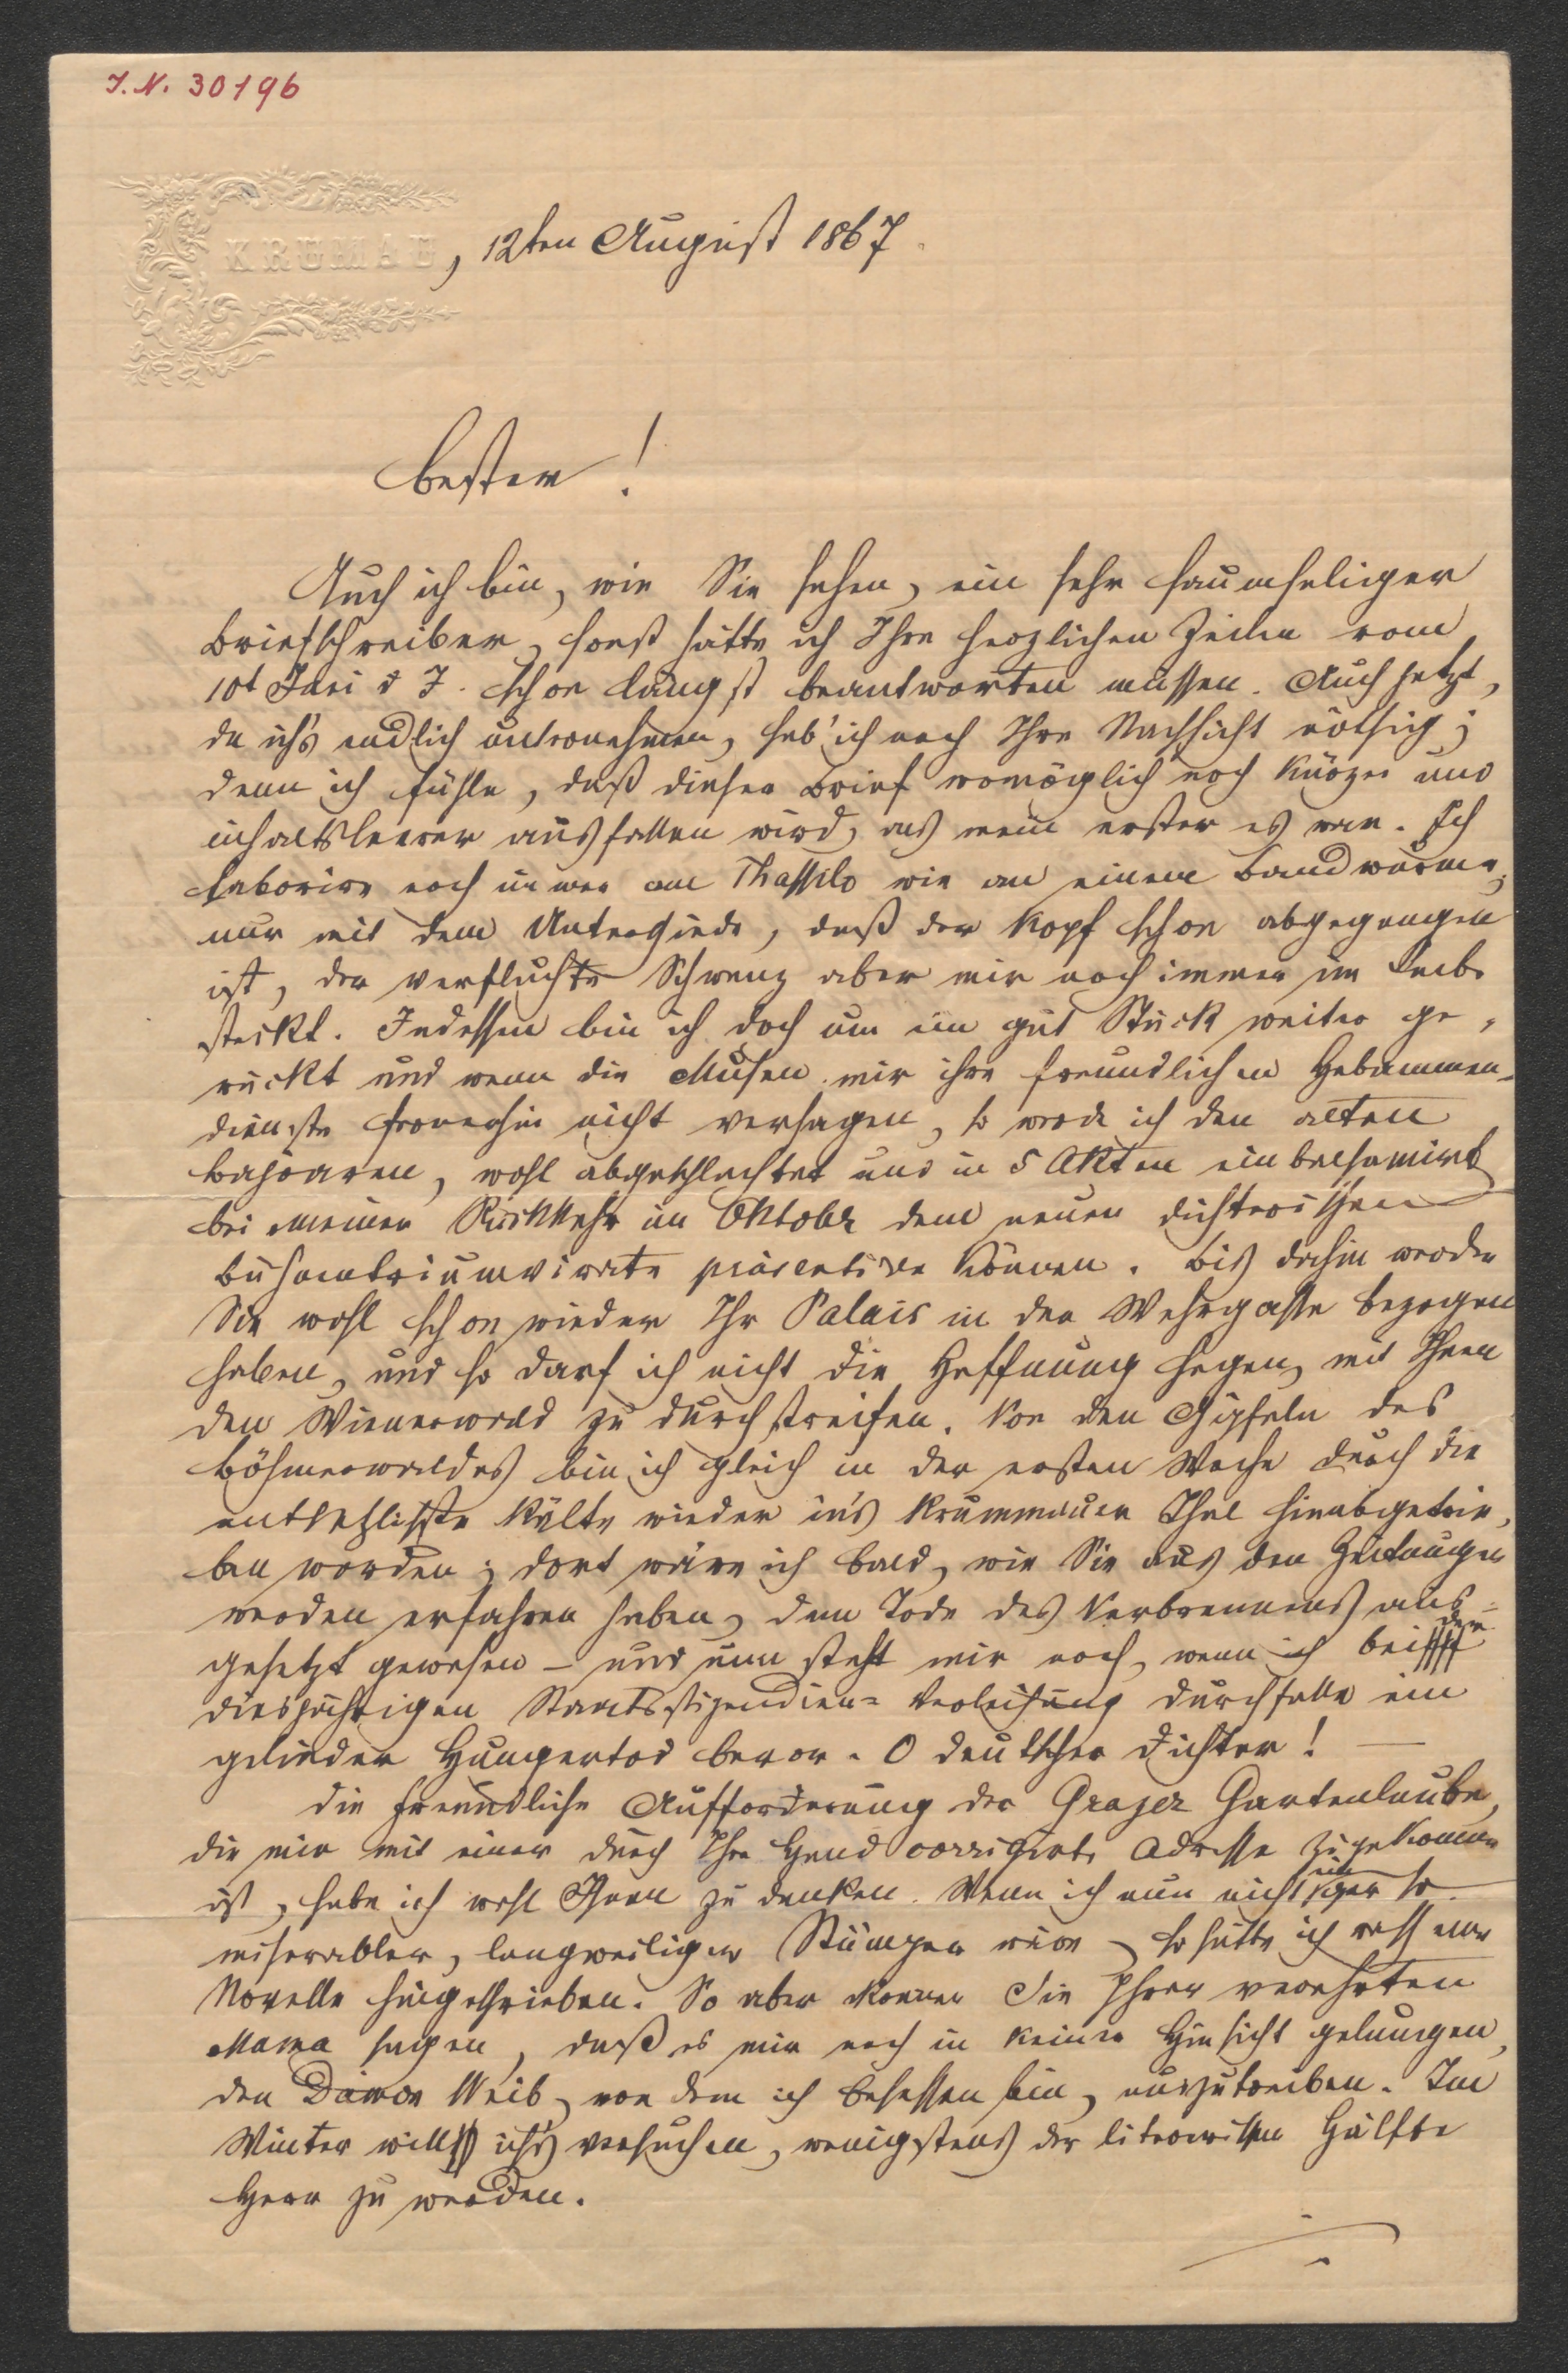 I. N. 30196
KRUMAU, 12ten August 1867
Bester!
Auch ich bin, wie Sie sehen, ein sehr saumseliger
Briefschreiber, sonst hätte ich Ihre herzlichen Zeilen vom
10t Juni d J. schon längst beantworten müssen. Auch jetzt,
da ich's endlich unternehme, hab' ich noch Ihre Nachsicht nöthig;
denn ich fühle, daß dieser Brief womöglich noch kürzer und
inhaltsleerer ausfallen wird, als mein erster es war. Ich
laborire noch immer am Thassilo wie an einem Bandwurme,
nur mit dem Unterschiede, daß der Kopf schon abgegangen
ist, der verfluchte Schwanz aber mir noch immer im Leibe
steckt. Indessen bin ich doch um ein gut Stück weiter ge-
rückt und wenn die Musen mir ihre freundlichen Hebammen-
dienste fernerhin nicht versagen, so werde ich den alten
Bajoaren, wohl abgeschlachtet und in 5 Akten einbalsamirt
bei meiner Rückkehr im Oktober dem neuen dichterischen
Bühnentriumvirate präsentiren können. Bis dahin werden
Sie wohl schon wieder Ihr Palais in der Wehrgasse bezogen
haben, und so darf ich nicht die Hoffnung hegen, mit Ihnen
den Wienerwald zu durchstreifen. Von den Gipfeln des
Böhmerwaldes bin ich gleich in der ersten Woche durch die
entsetzlichste Kälte wieder in's Krummauer Thal hinabgetrie-
ben worden; dort wäre ich bald, wie Sie aus den Zeitungen
werden erfahren haben, dem Tode des Verbrennens aus-
gesetzt gewesen – und nun steht mir noch, wenn ich bei der
diesjährigen Staatsstipendien-Verleihung durchfalle ein
gelinder Hungertod bevor. O deutscher Dichter! —
Die freundliche Aufforderung der Grazer Gartenlaube,
die mir mit einer durch Ihre Hand corrigirte Adresse zugekommen
ist, habe ich wohl Ihnen zu danken. Wenn ich nun nicht ein gar so
miserabler, langweiliger Stümper wäre, so hätte ich rasch eine
Novelle hingeschrieben. So aber können Sie Ihrer verehrten
Mama sagen, daß es mir noch in keiner Hinsicht gelungen,
den Dämon Weib, von dem ich besessen bin, auszutreiben. Im
Winter will ich's versuchen, wenigstens der literarischen Hälfte
Herr zu werden.